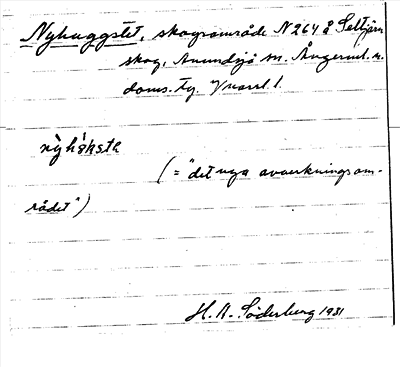 Nyhuggstet, skogsområde N 264 å Seltjärn
skog, Anundsjö sn. Ångerml. n.
doms. Fg. Vnorrl. l.
nỳhǻkste
(= "det nya avverkningsom-
rådet")
H. A. Söderberg 1931